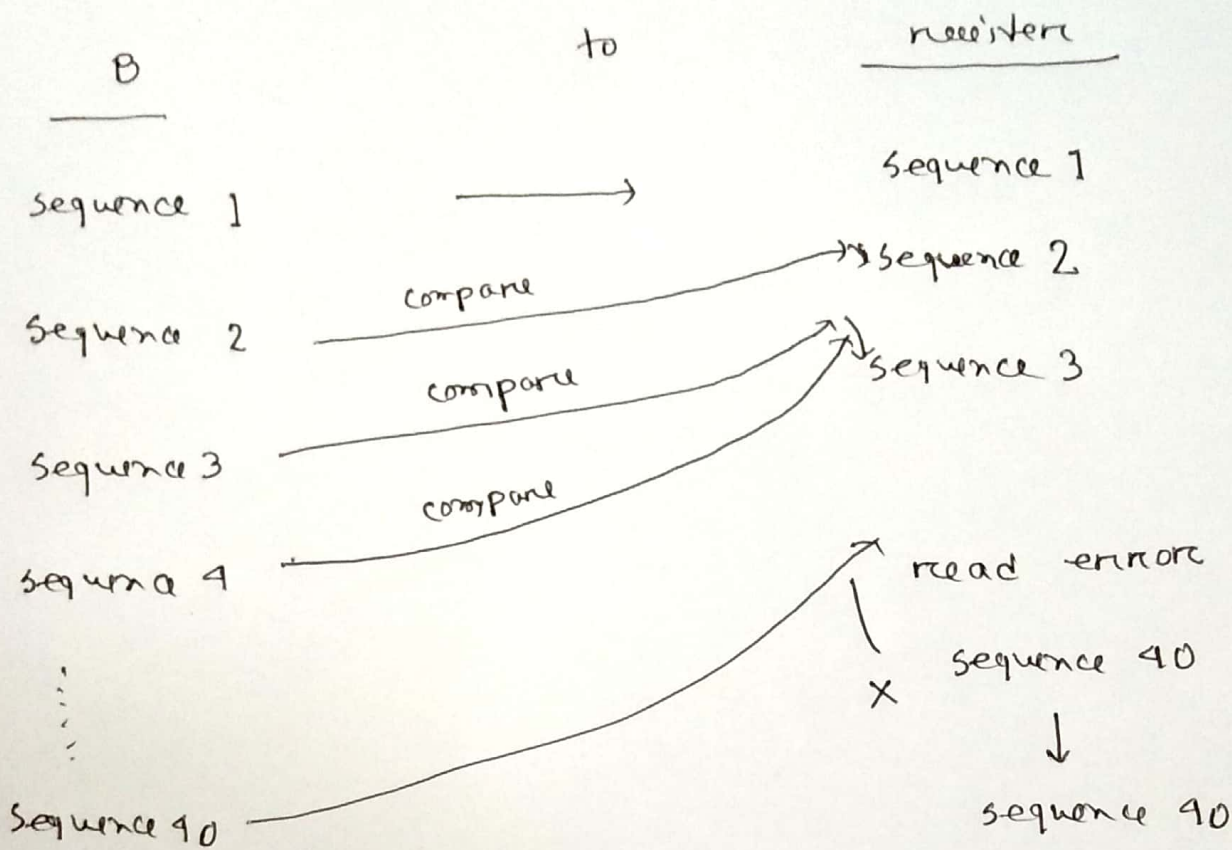 B to receiver
sequence 1 sequence 1
compare sequence 2
sequence 2
compare sequence 3
sequence 3
compare
sequence 4
read error
sequence 40
sequence 40 sequence 40